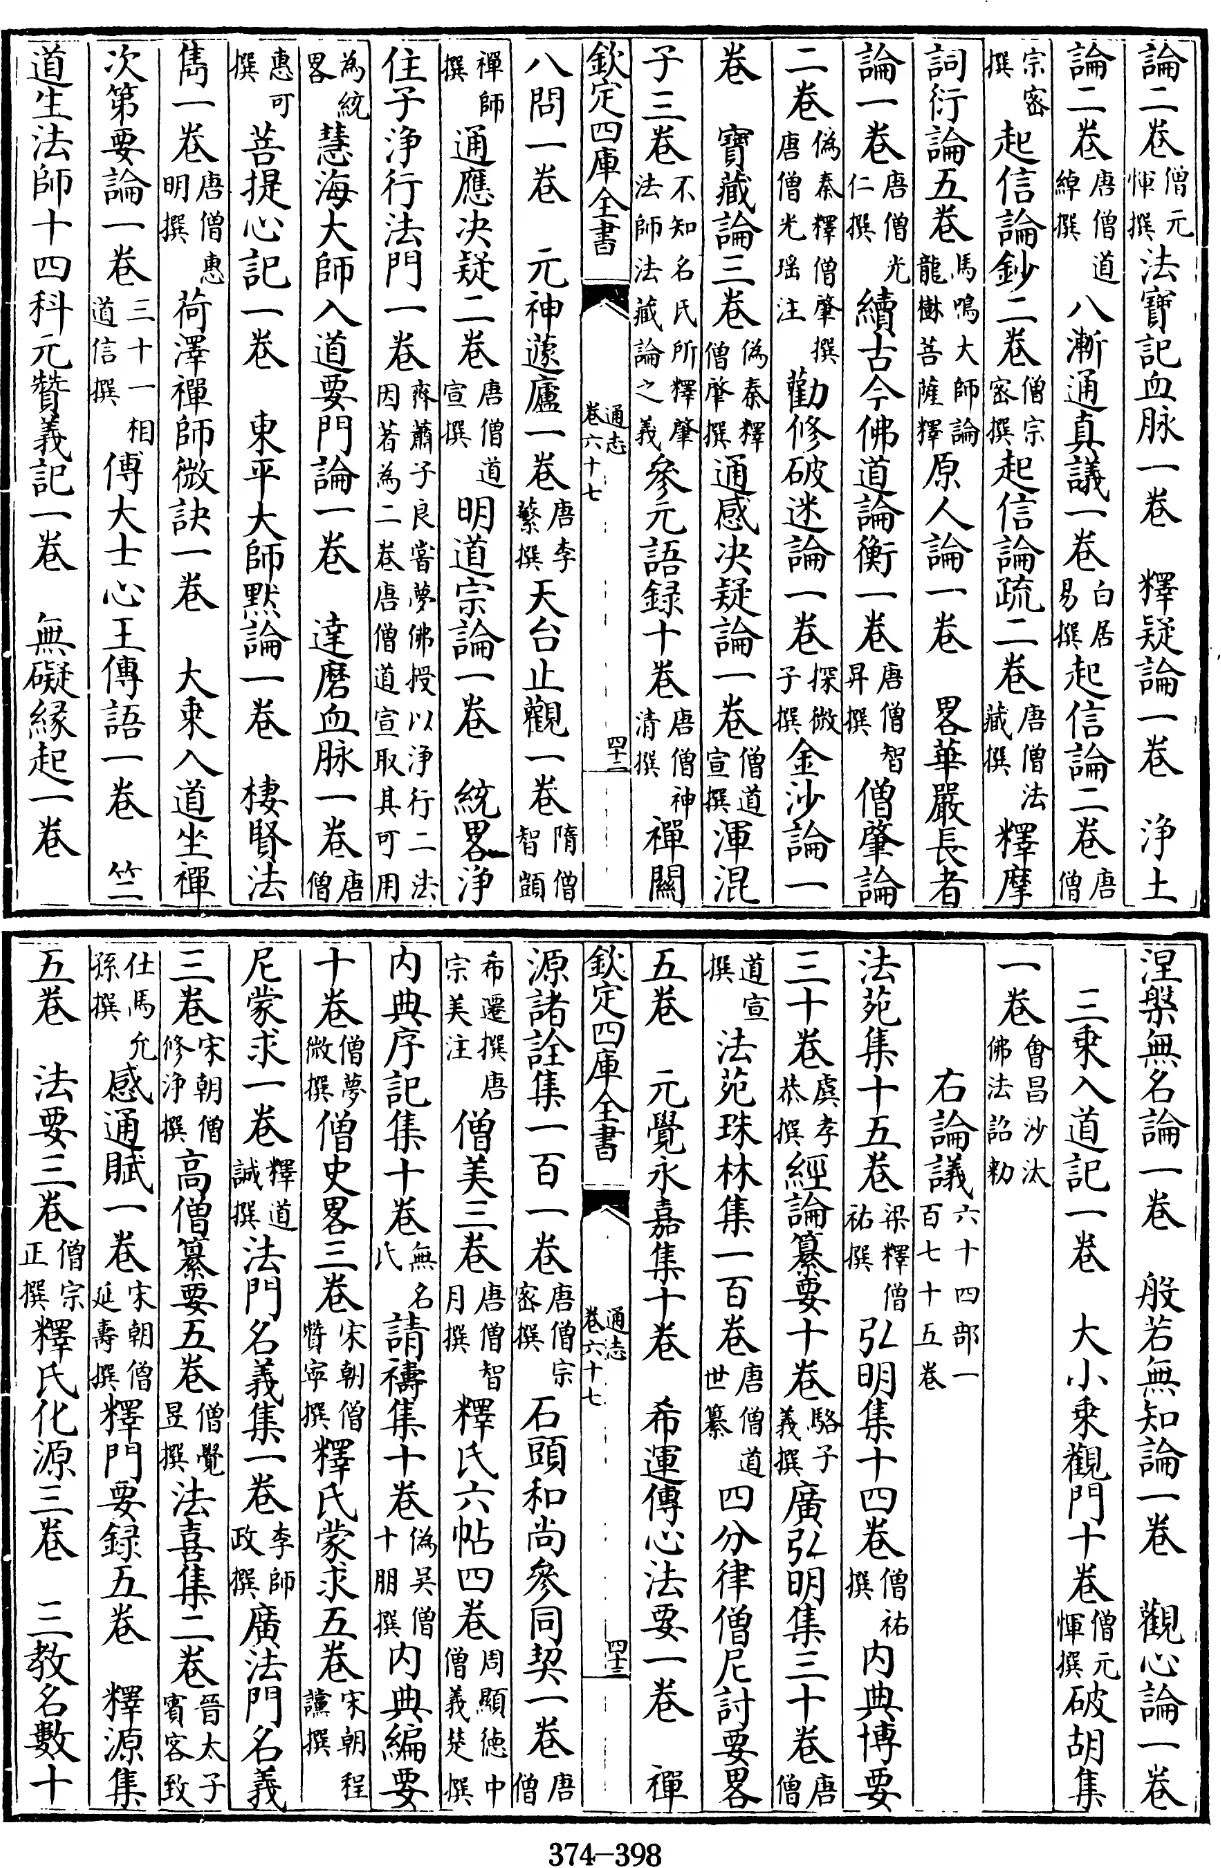 論二卷僧元惲撰法寶記血脉一卷　釋疑論一卷　浄土
論二卷唐僧道綽撰八漸通真議一卷白居易撰起信論二卷唐僧
宗密撰起信論鈔二卷僧宗密撰起信論疏二卷唐僧法藏撰釋摩
訶衍論五卷馬鳴大師論龍樹菩薩釋原人論一卷　畧華嚴長者
論一卷唐僧光仁撰續古今佛道論衡一卷唐僧智昇撰僧肇論
二卷偽秦釋僧肇撰唐僧光瑶注勸修破迷論一卷探微子撰金沙論一
卷　寶藏論三卷偽秦釋僧肇撰通感决疑論一卷僧道宣撰渾混
子三卷不知名氏所釋肇法師法藏論之義參元語録十卷唐僧神清撰禪關
欽定四庫全書　通志卷六十七　四十二
八問一卷　元神蘧廬一卷唐李蘩撰天台止觀一卷隋僧智顗
禪師撰通應决疑二卷唐僧道宣撰明道宗論一卷　統畧浄
住子浄行法門一卷齊蕭子良嘗夢佛授以浄行二法因若為二卷唐僧道宣取其可用
為統畧慧海大師入道要門論一卷　達磨血脉一卷唐僧
惠可撰菩提心記一卷　東平大師默論一卷　棲賢法
雋一卷唐僧惠明撰荷澤禪師微訣一卷　大乗入道坐禪
次第要論一卷三十一相道信撰傅大士心王傳語一卷　竺
道生法師十四科元贊義記一卷　無礙縁起一卷
涅槃無名論一卷　般若無知論一卷　觀心論一卷
三乗入道記一卷　大小乗觀門十卷僧元惲撰破胡集
一卷會昌沙汰佛法詔勑
右論議六十四部一百七十五卷
法苑集十五卷梁釋僧祐撰弘明集十四卷僧祐撰内典博要
三十卷虞孝恭撰經論纂要十卷駱子義撰廣弘明集三十卷唐僧
道宣撰法苑珠林集一百卷唐僧道世纂四分律僧尼討要畧
五卷　元覺永嘉集十卷　希運傳心法要一卷　禪
欽定四庫全書　通志卷六十七　四十三
源諸詮集一百一卷唐僧宗密撰石頭和尚參同契一卷唐僧
希遷撰唐宗美注僧美三卷唐僧智月撰釋氏六帖四卷周顯德中僧義楚撰
内典序記集十卷無名氏請禱集十卷偽吴僧十朋撰内典編要
十卷僧夢微撰僧史畧三卷宋朝僧贊寧撰釋氏蒙求五卷宋朝程讜撰
尼蒙求一卷釋道誠撰法門名義集一卷李師政撰廣法門名義
三卷宋朝僧修浄撰高僧纂要五卷僧覺旻撰法喜集二卷晉太子賓客致
仕馬允孫撰感通賦一卷宋朝僧延壽撰釋門要録五卷　釋源集
五卷　法要三卷僧宗正撰釋氏化源三卷　三教名數十
374-398